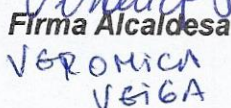 Firma Alcaldesa
VERONICA
VEIGA